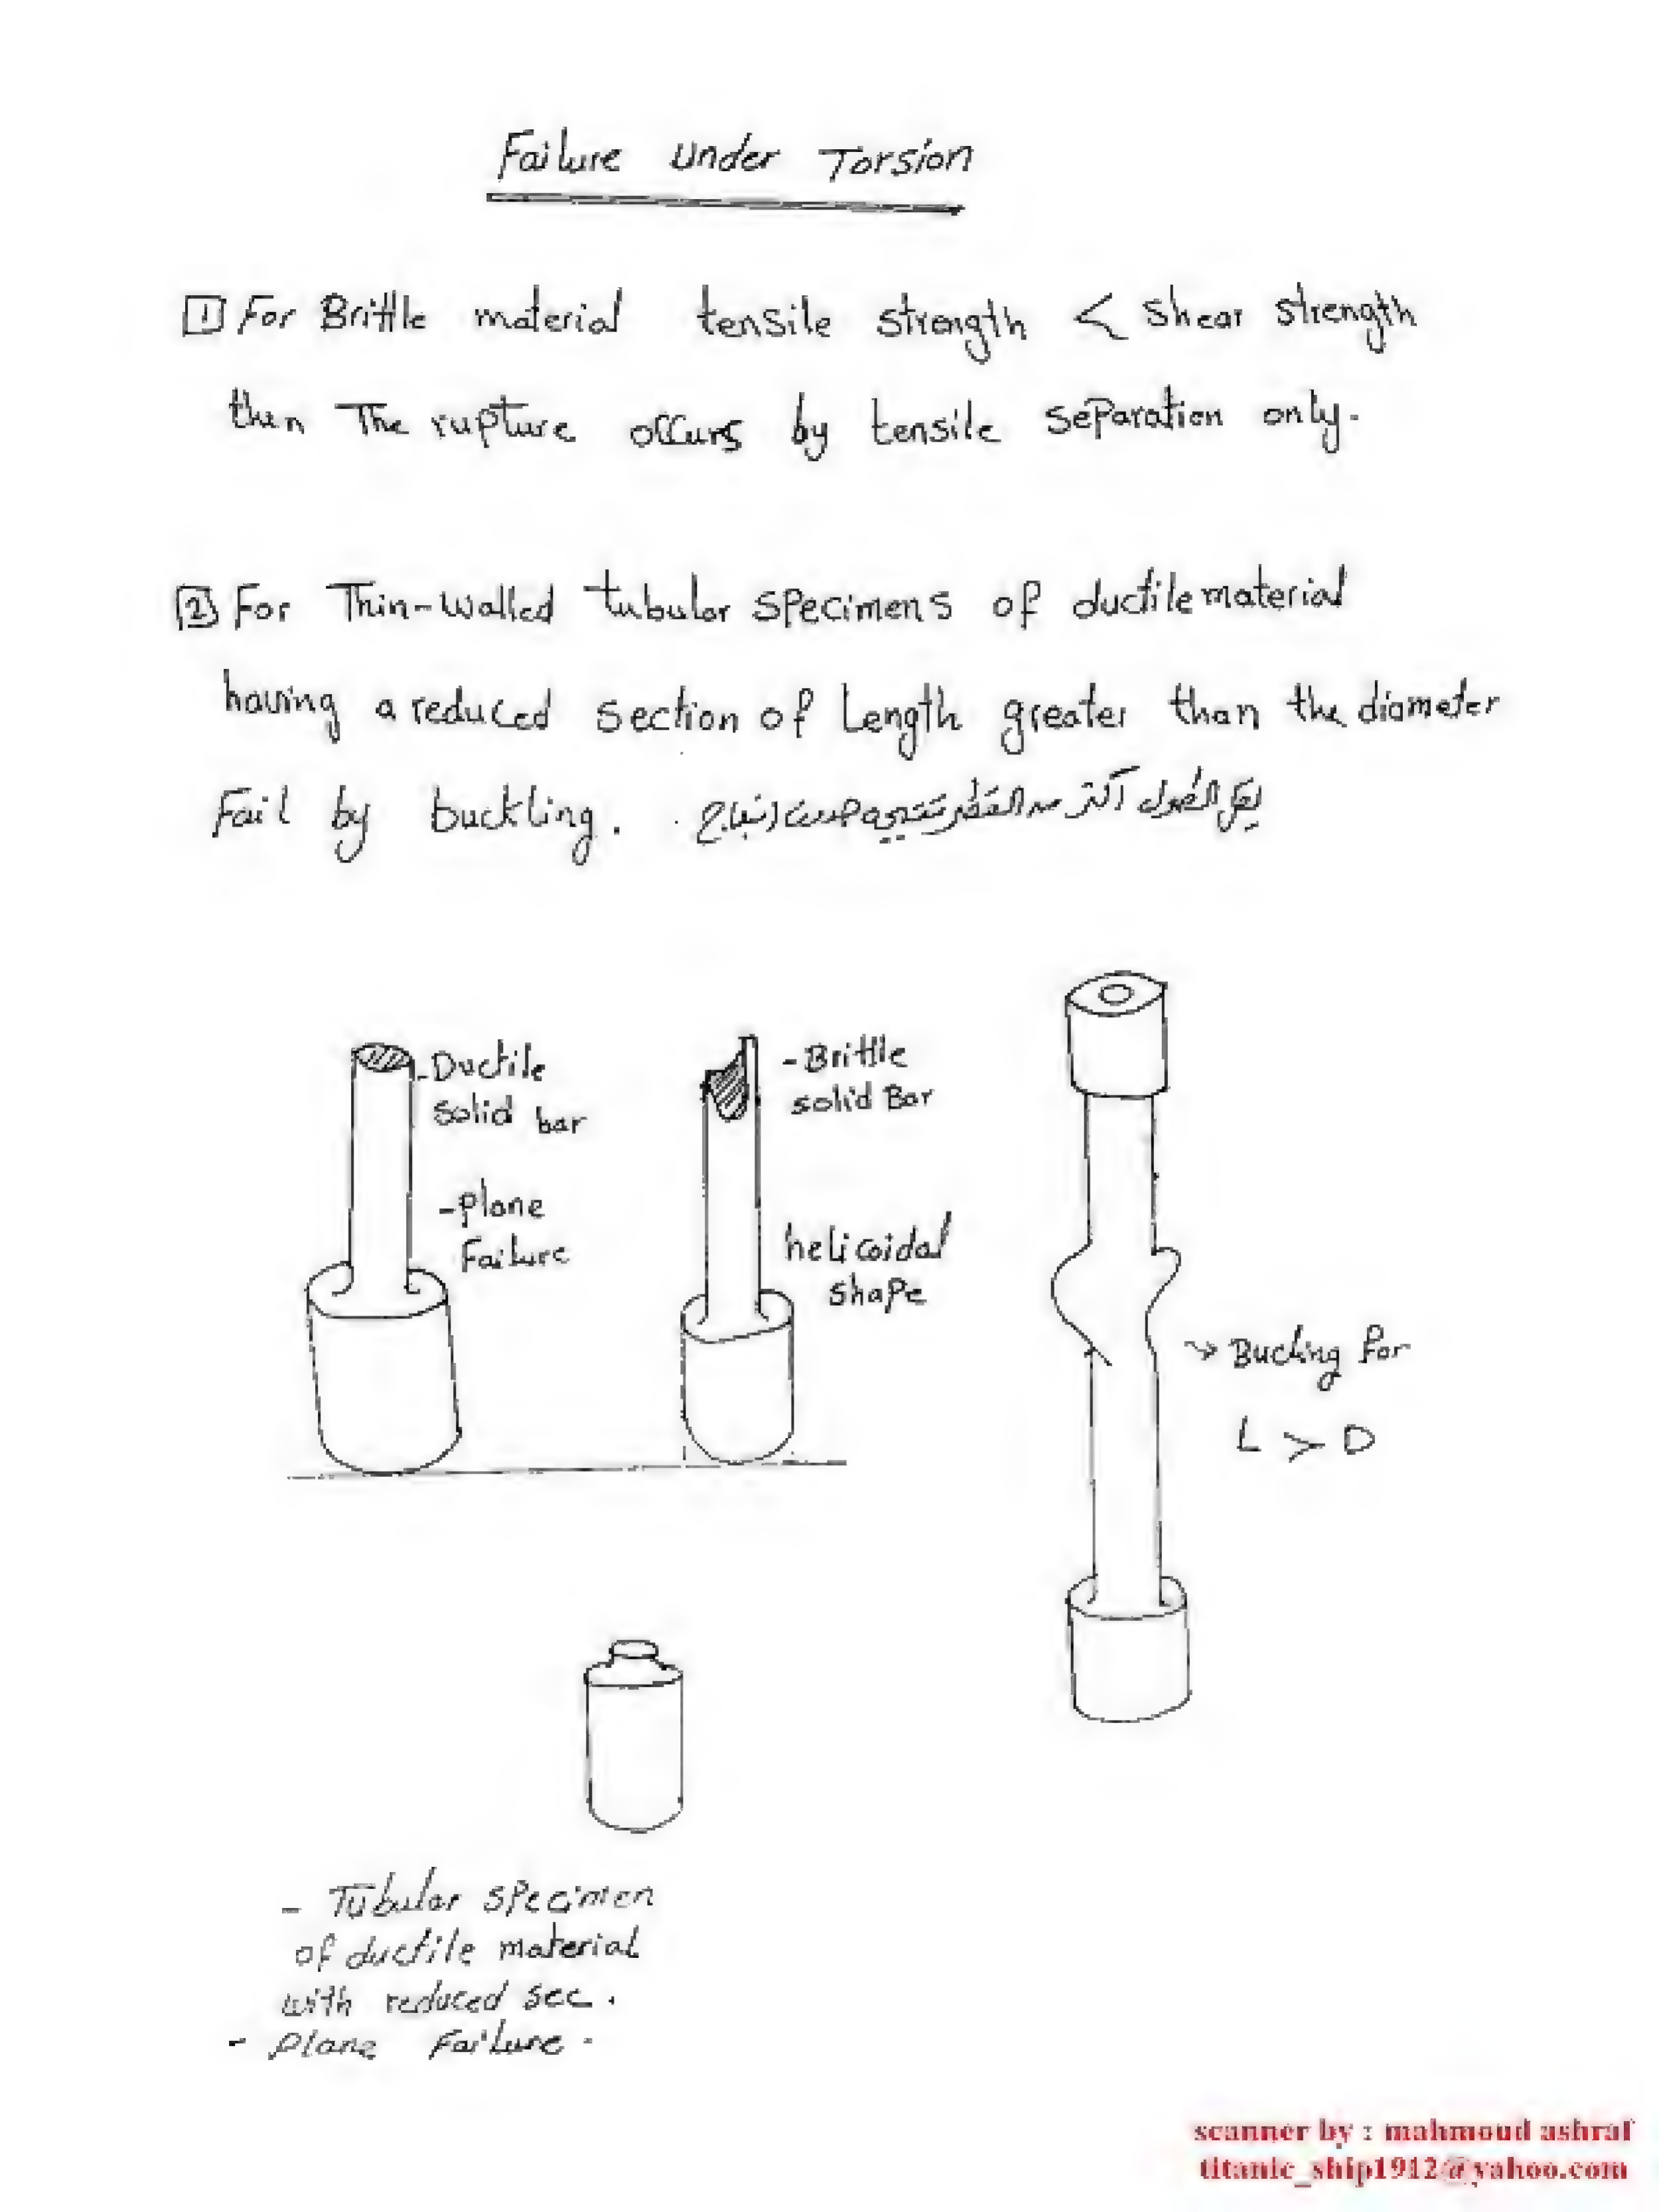 Failure under Torsion
1 For Brittle material tensile strength < shear strength
then The rupture occurs by tensile separation only.
2 For Thin-walled tubular specimens of ductile material
having a reduced section of Length greater than the diameter
Fail by buckling. الطول أكتر من القطر
- Ductile
solid bar
- plane
Failure
- Brittle
solid Bar
helicoidal
shape
→ Bucling for
L > D
- Tubular specimen
of ductile material
with reduced sec.
- Plane Failure -
scanner by : mahmoud ashraf
titanic_ship1912@yahoo.com